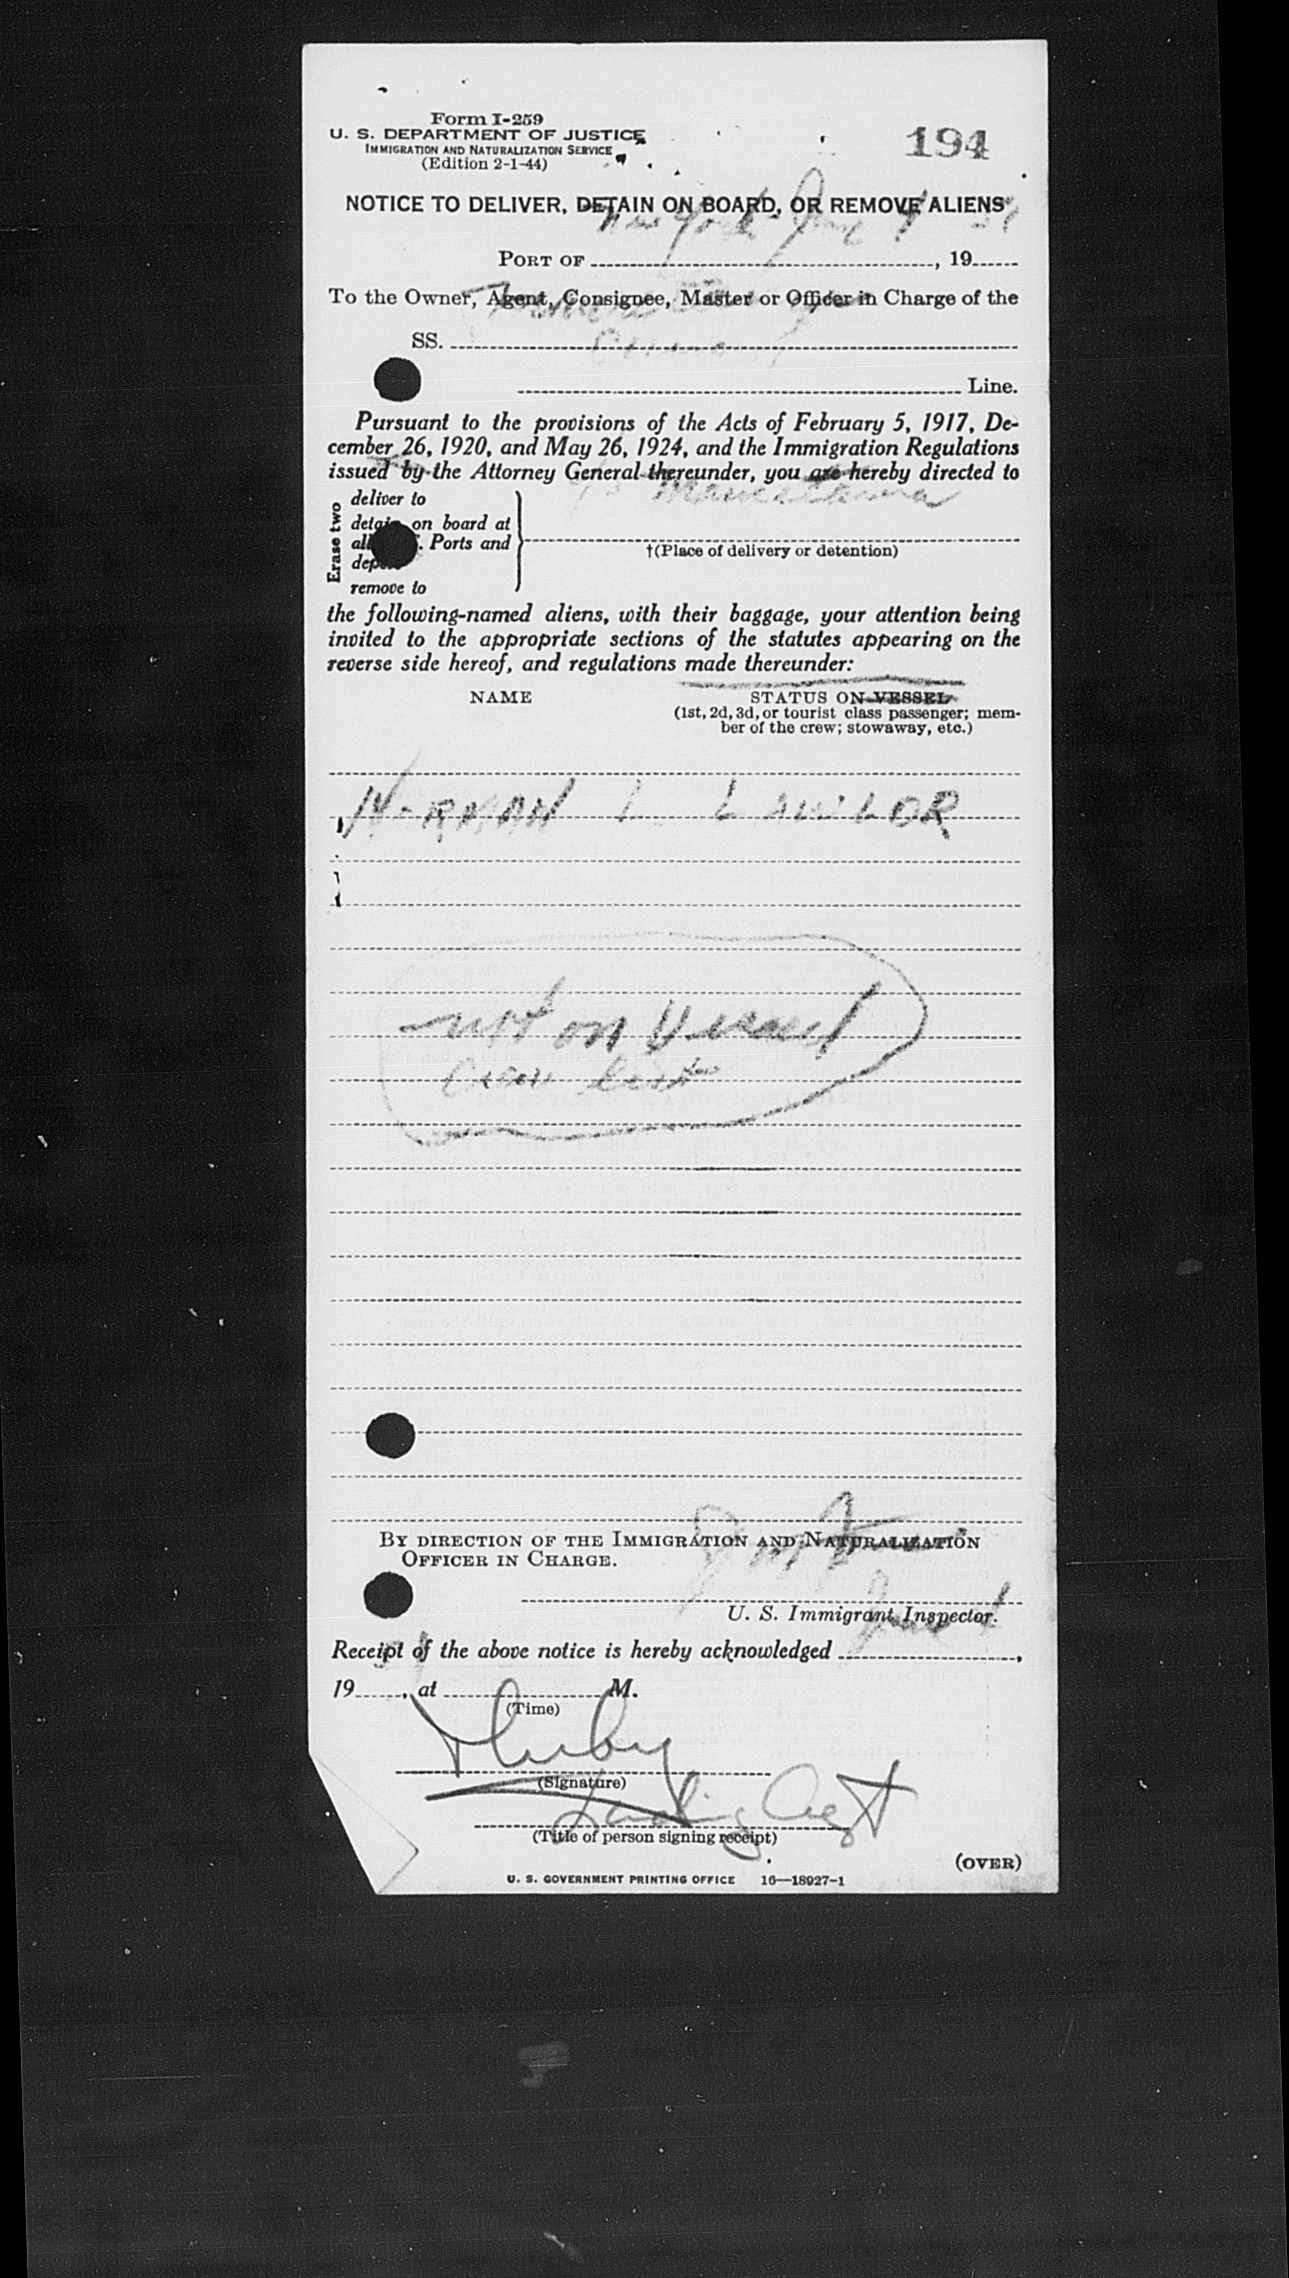 Form I-259
U. S. DEPARTMENT OF JUSTICE
IMMIGRATION AND NATURALIZATION SERVICE
(Edition 2-1-44)
194
NOTICE TO DELIVER, DETAIN ON BOARD, OR REMOVE ALIENS
New York
PORT OF , 19
To the Owner, Agent, Consignee, Master or Officer in Charge of the
SS.
Line.
Pursuant to the provisions of the Acts of February 5, 1917, De-
cember 26, 1920, and May 26, 1924, and the Immigration Regulations
issued by the Attorney General thereunder, you are hereby directed to
Erase two
deliver to
detain on board at
all . Ports and
remove to
†(Place of delivery or detention)
the following-named aliens, with their baggage, your attention being
invited to the appropriate sections of the statutes appearing on the
reverse side hereof, and regulations made thereunder:
NAME STATUS ON VESSEL
(1st, 2d, 3d, or tourist class passenger; mem-
ber of the crew; stowaway, etc.)
NORMAN L. LAWLOR
not on Vessel
Crew list
BY DIRECTION OF THE IMMIGRATION AND NATURALIZATION
OFFICER IN CHARGE.
U. S. Immigrant Inspector.
Receipt of the above notice is hereby acknowledged ,
19 , at M.
(Time)
(Signature)
Landing Agt
(Title of person signing receipt)
(OVER)
U. S. GOVERNMENT PRINTING OFFICE 16—18927-1